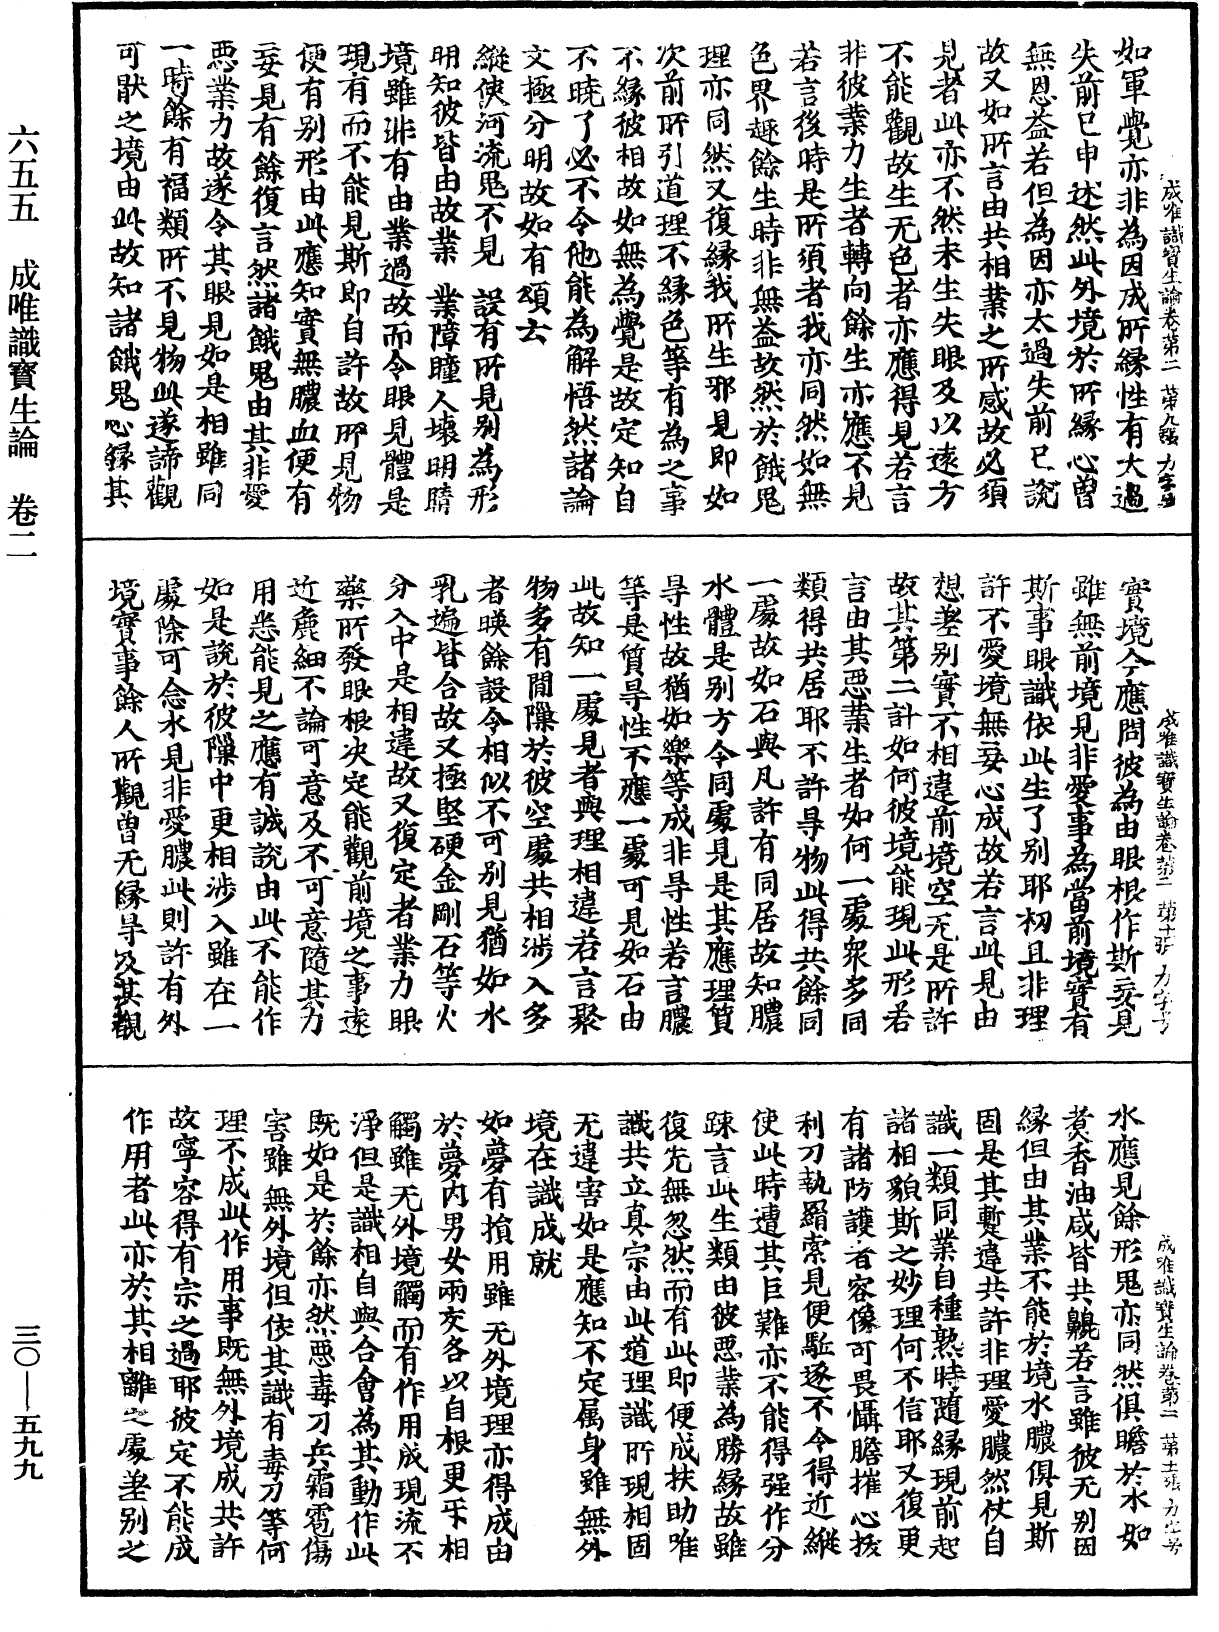 六五五　成唯識寶生論　卷二
三〇—五九九
成唯識寶生論卷第二　第九張　力字号
如軍覺亦非為因成所緣性有大過
失前已申述然此外境於所緣心曾
無恩益若但為因亦太過失前已說
故又如所言由共相業之所感故必須
見者此亦不然未生失眼及以遠方
不能觀故生无色者亦應得見若言
非彼業力生者轉向餘生亦應不見
若言後時是所須者我亦同然如無
色界趣餘生時非無益故然於餓鬼
理亦同然又復緣我所生邪見即如
次前所引道理不緣色等有為之事
不緣彼相故如無為覺是故定知自
不曉了必不令他能為解悟然諸論
文極分明故如有頌云
縱使河流鬼不見　設有所見別為形
明知彼皆由故業　業障瞳人壞明睛
境雖非有由業過故而令眼見體是
現有而不能見斯即自許故所見物
便有別形由此應知實無膿血便有
妄見有餘復言然諸餓鬼由其非愛
惡業力故遂令其眼見如是相雖同
一時餘有福類所不見物此遂諦觀
可猒之境由此故知諸餓鬼心緣其
成唯識寶生論卷第二　第十張　力字号
實境今應問彼為由眼根作斯妄見
雖無前境見非愛事為當前境實有
斯事眼識依此生了別耶初且非理
許不愛境無妄心成故若言此見由
想差別實不相違前境空无是所許
故其第二計如何彼境能現此形若
言由其惡業生者如何一處衆多同
類得共居耶不許㝵物此得共餘同
一處故如石與凡許有同居故知膿
水體是別方令同處見是其應理質
㝵性故猶如樂等成非㝵性若言膿
等是質㝵性不應一處可見如石由
此故知一處見者與理相違若言聚
物多有間隟於彼空處共相涉入多
者映餘設令相似不可別見猶如水
乳遍皆合故又極堅硬金剛石等火
分入中是相違故又復定者業力眼
藥所發眼根决定能觀前境之事遠
近麁細不論可意及不可意隨其力
用悉能見之應有誠說由此不能作
如是說於彼隟中更相涉入雖在一
處除可念水見非愛膿此則許有外
境實事餘人所觀曾无緣㝵及其觀
成唯識寶生論卷第二　第十一張　力字号
水應見餘形鬼亦同然俱瞻於水如
煑香油咸皆共覩若言雖彼无別因
緣但由其業不能於境水膿俱見斯
固是其蹔違共許非理愛膿然仗自
識一類同業自種熟時隨緣現前起
諸相貌斯之妙理何不信耶又復更
有諸防護者容像可畏懾膽摧心拔
利刀執羂索見便駈逐不令得近縱
使此時遭其巨難亦不能得强作分
踈言此生類由彼惡業為勝緣故雖
復先無忽然而有此即便成扶助唯
識共立真宗由此道理識所現相固
无違害如是應知不定属身雖無外
境在識成就
如夢有損用雖无外境理亦得成由
於夢內男女兩交各以自根更㸦相
觸雖无外境觸而有作用成現流不
淨但是識相自與合會為其動作此
既如是於餘亦然惡毒刀兵霜雹傷
害雖無外境但依其識有毒刀等何
理不成此作用事既無外境成共許
故寧容得有宗之過耶彼定不能成
作用者此亦於其相離之處差別之